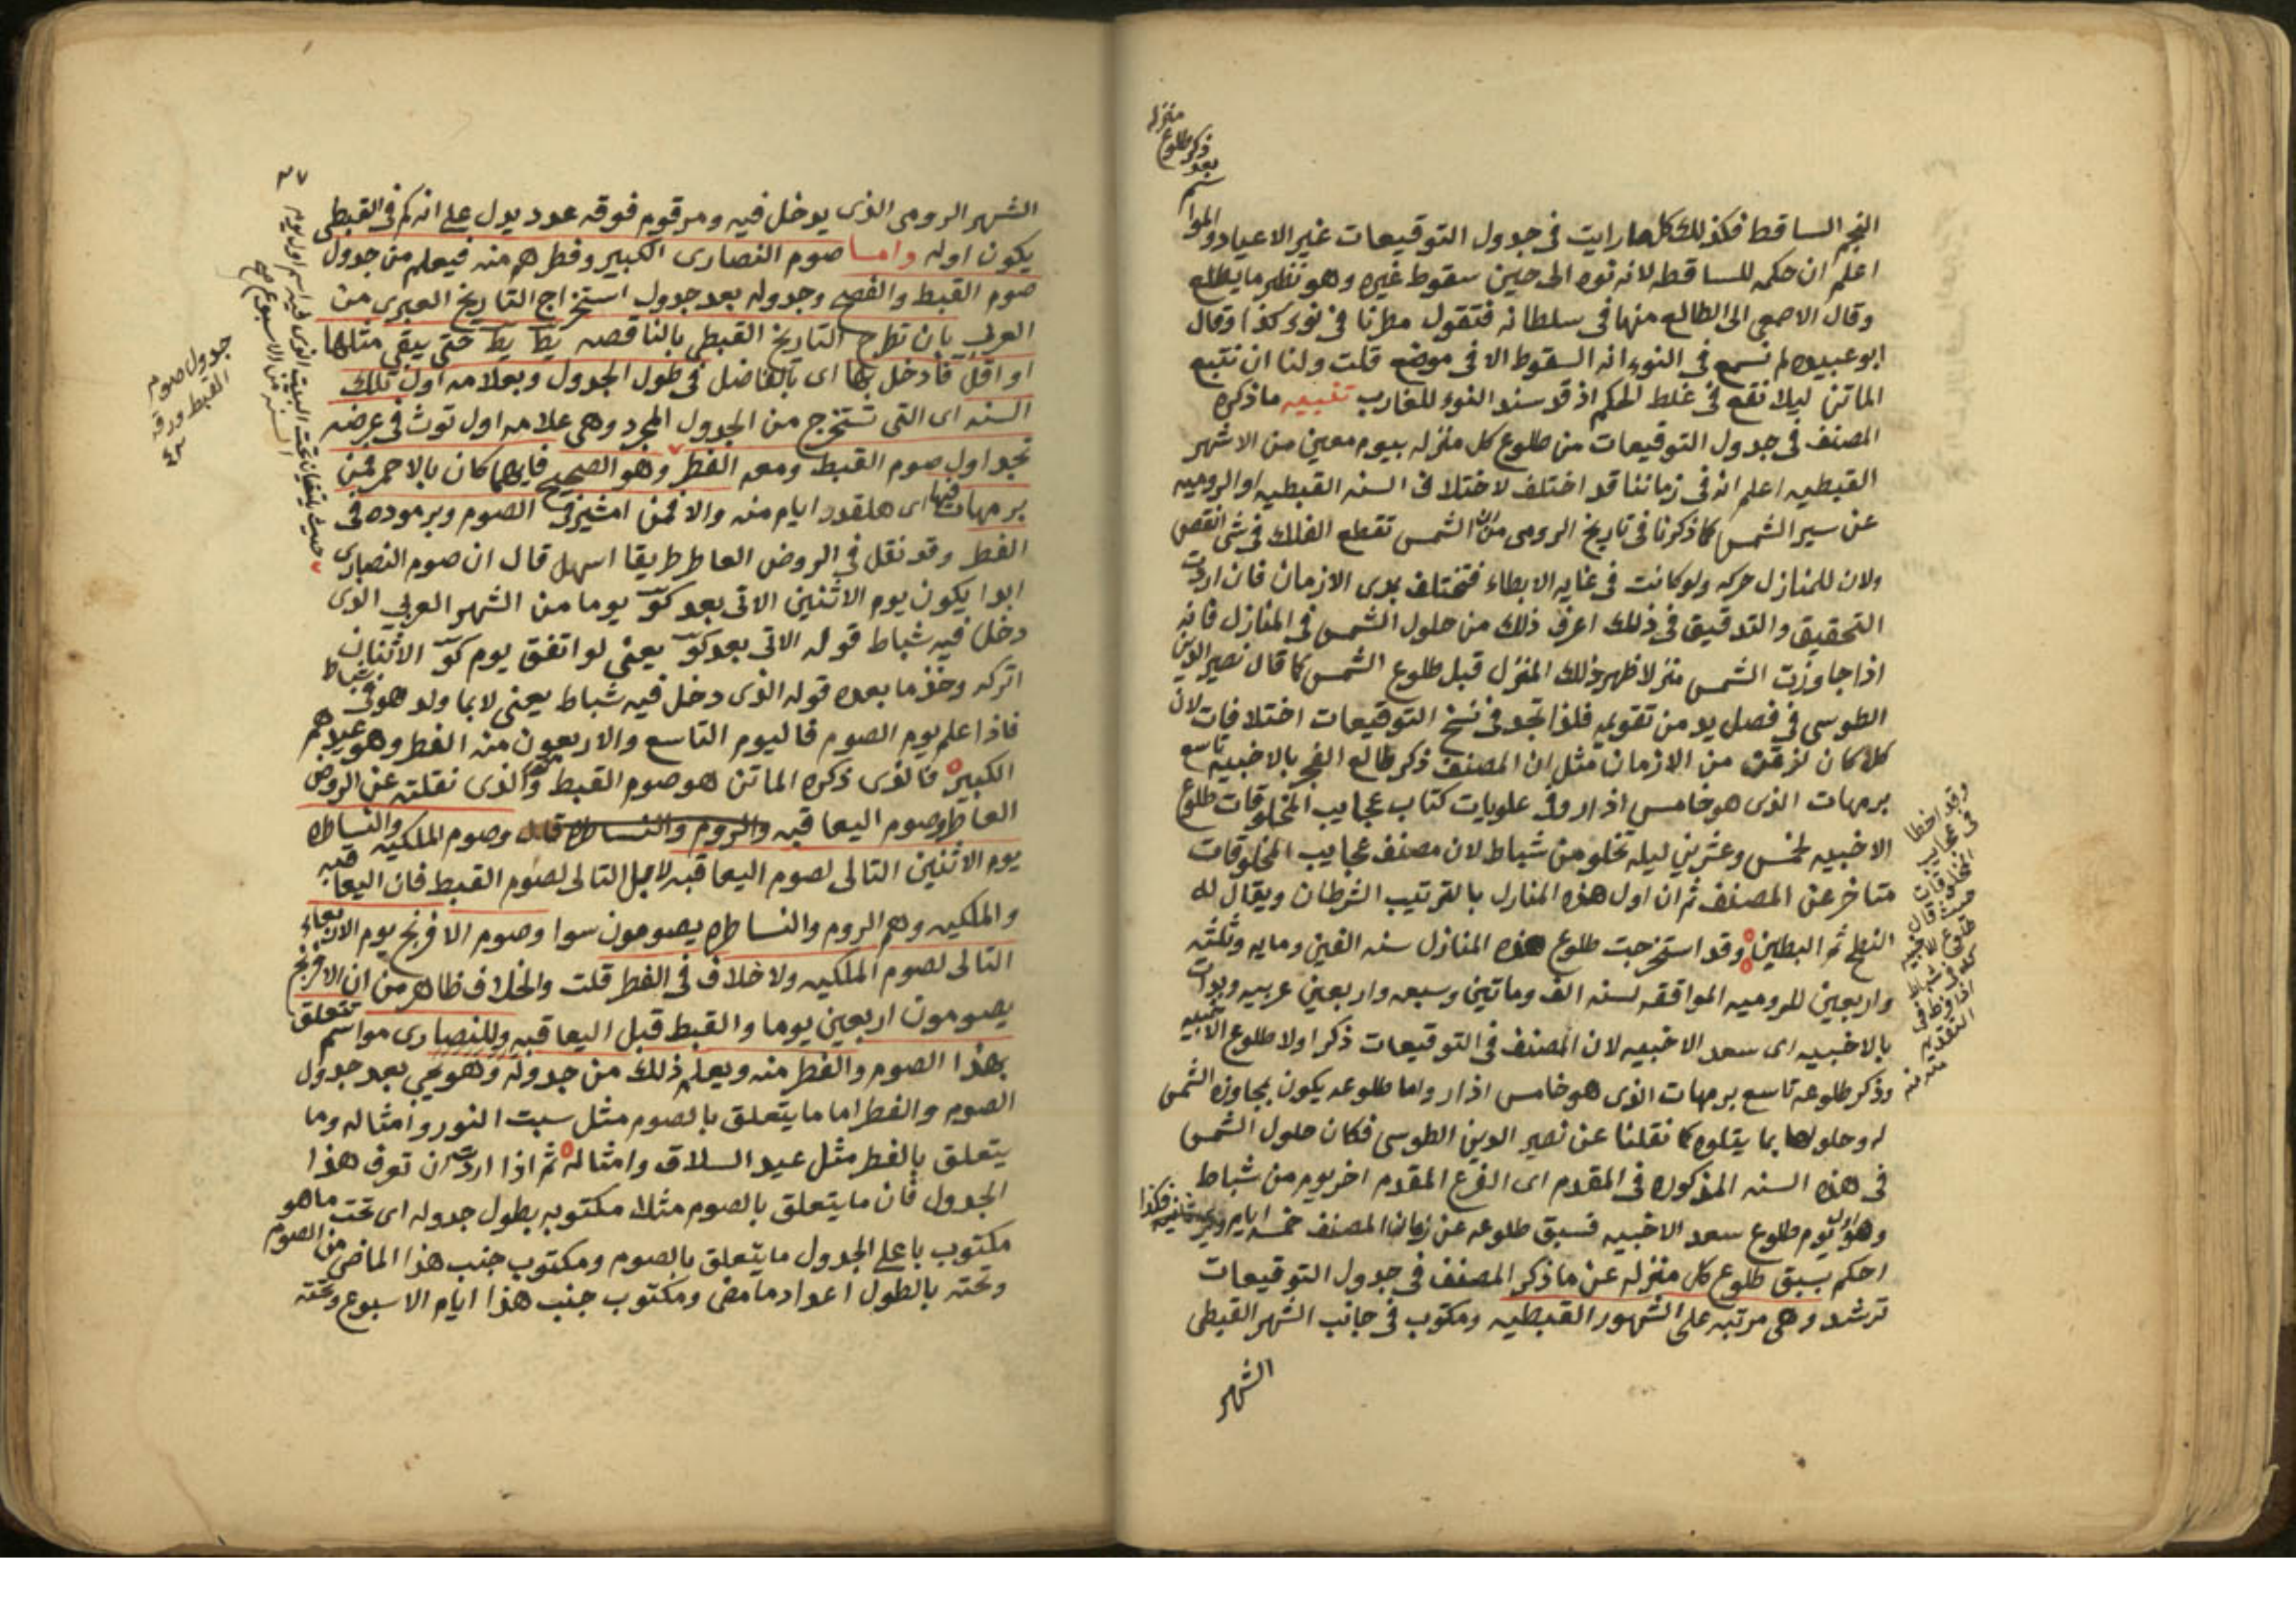 منزله
ذكر طلوع
بعد
النجم الساقط فكذلك كل ما رايت فى جدول التوقيعات غير الاعياد والمواسم
اعلم ان حكمه للساقط لانه نوه الى حين سقوط غيره وهو نظير ما يطلع
وقال الاصمعى الى الطالع منها فى سلطانه فتقول مطرنا فى نوء كذا وقال
ابو عبيده لم نسمع فى النوء انه السقوط الا فى موضع قلت ولنا ان نتبع
الماتن ليلا نقع فى غلط الحكم اذ قد سند النوء للغارب تنبيه ما ذكره
المصنف فى جدول التوقيعات من طلوع كل منزله بيوم معين من الاشهر
القبطيه اعلم انه فى زماننا قد اختلف لاختلاف السنه القبطيه او الروميه
عن سير الشمس كما ذكرنا فى تاريخ الرومى من ان الشمس تقطع الفلك فى شى انقص
ولان للمنازل حركه ولو كانت فى غايه الابطاء فتختلف بمدى الازمان فان اردت
التحقيق والتدقيق فى ذلك اعرف ذلك من حلول الشمس فى المنازل فانه
اذا جاوزت الشمس منزلا ظهر ذلك المنزل قبل طلوع الشمس كما قال نصير الدين
الطوسى فى فصل يد من تقويمه فلذا تجد فى نسخ التوقيعات اختلافات لان
كلا كان من الازمان مثل ان المصنف ذكر طالع الفجر بالاخبيه تاسع
برمهات الذى هو خامس اذار وفى علويات كتاب عجايب المخلوقات طلوع
الاخبيه لخمس وعشرين ليله تخلو من شباط لان مصنف عجايب المخلوقات
متاخر عن المصنف ثم ان اول هذه المنازل بالترتيب الشرطان ويقال له
النطح ثم البطين وقد استخرجت طلوع هذه المنازل سنه الفين ومايه وثلثه
واربعين للروميه الموافقه لسنه الف وماتين وسبعه واربعين عربيه وبدات
بالاخبيه اى سعد الاخبيه لان المصنف فى التوقيعات ذكر اولا طلوع الاخبيه
وذكر طلوعه تاسع برمهات الذى هو خامس اذار ولما طلوعه يكون بمجاوزه الشمس
له وحلولها بما يتلوه كما نقلنا عن نصير الدين الطوسى فكان حلول الشمس
فى هذه السنه المذكوره فى المقدم اى الفرع المقدم اخر يوم من شباط
وهو اول يوم طلوع سعد الاخبيه فسبق طلوعه عن زمان المصنف خمسه ايام فكذا
احكم بسبق طلوع كل منزله عن ما ذكر المصنف فى جدول التوقيعات
ترشد وهى مرتبه على الشهور القبطيه ومكتوب فى جانب الشهر القبطى
الشهر
وقد اخطا
فى عجايب
المخلوقات
حيث قال
طلوع الاخبيه
التقديم
الشهر الرومى الذى يدخل فيه ومرقوم فوقه عدد يدل على انه كم فى القبطى
يكون اوله واما صوم النصارى الكبير وفطرهم منه فيعلم من جدول
صوم القبط والفصح وجدوله بعد جدول استخراج التاريخ العبرى من
العربى بان تطرح التاريخ القبطى بالناقصه يط يط حتى يبقى مثلها
او اقل فادخل بها اى بالفاضل فى طول الجدول وبعلامه اول تلك
السنه اى التى تستخرج من الجدول المجرد وهى علامه اول توث فى عرضه
تجد اول صوم القبط ومعه الفطر وهو الصحيح فايهما كان بالاحمر فمن
برمهات فيها اى هلقدر ايام منه والا فمن امشير فى الصوم وبرموده فى
الفطر وقد نقل فى الروض العاطر طريقا اسهل قال ان صوم النصارى
ابدا يكون يوم الاثنين الاتى بعد كو يوما من الشهر العربى الذى
دخل فيه شباط قوله الاتى بعد كو يعنى لو اتفق يوم كو الاثنان
اتركه وخذ ما بعده قوله الذى دخل فيه شباط يعنى لا بما ولد هو فى شباط
فاذا علم يوم الصوم فاليوم التاسع والاربعون منه الفطر وهو عيدهم
الكبير فالذى ذكره الماتن هو صوم القبط والذى نقلته عن الروض
العاطر وصوم اليعاقبه والروم والنساطره وصوم الملكيه والنساطره
يوم الاثنين التالى لصوم اليعاقبه لاجل التالى لصوم القبط فان اليعاقبه
والملكيه وهم الروم والنساطره يصومون سوا وصوم الافرنج يوم الاربعاء
التالى لصوم الملكيه ولا خلاف فى الفطر قلت والخلاف ظاهر من ان الافرنج
يصومون اربعين يوما والقبط قبل اليعاقبه وللنصارى مواسم تتعلق
بهذا الصوم والفطر منه ويعلم ذلك من جدوله وهو يجى بعد جدول
الصوم والفطر اما ما يتعلق بالصوم مثل سبت النور وامثاله وما
يتعلق بالفطر مثل عيد السلاق وامثاله ثم اذا اردت ان تعرف هذا
الجدول فان ما يتعلق بالصوم مثلا مكتوب بطول جدوله اى تحت ما هو
مكتوب باعلى الجدول ما يتعلق بالصوم ومكتوب جنب هذا الماضى من الصوم
وتحته بالطول اعداد ما مضى ومكتوب جنب هذا ايام الاسبوع وتحته
٣٧
جدول صوم
القبط ورقه